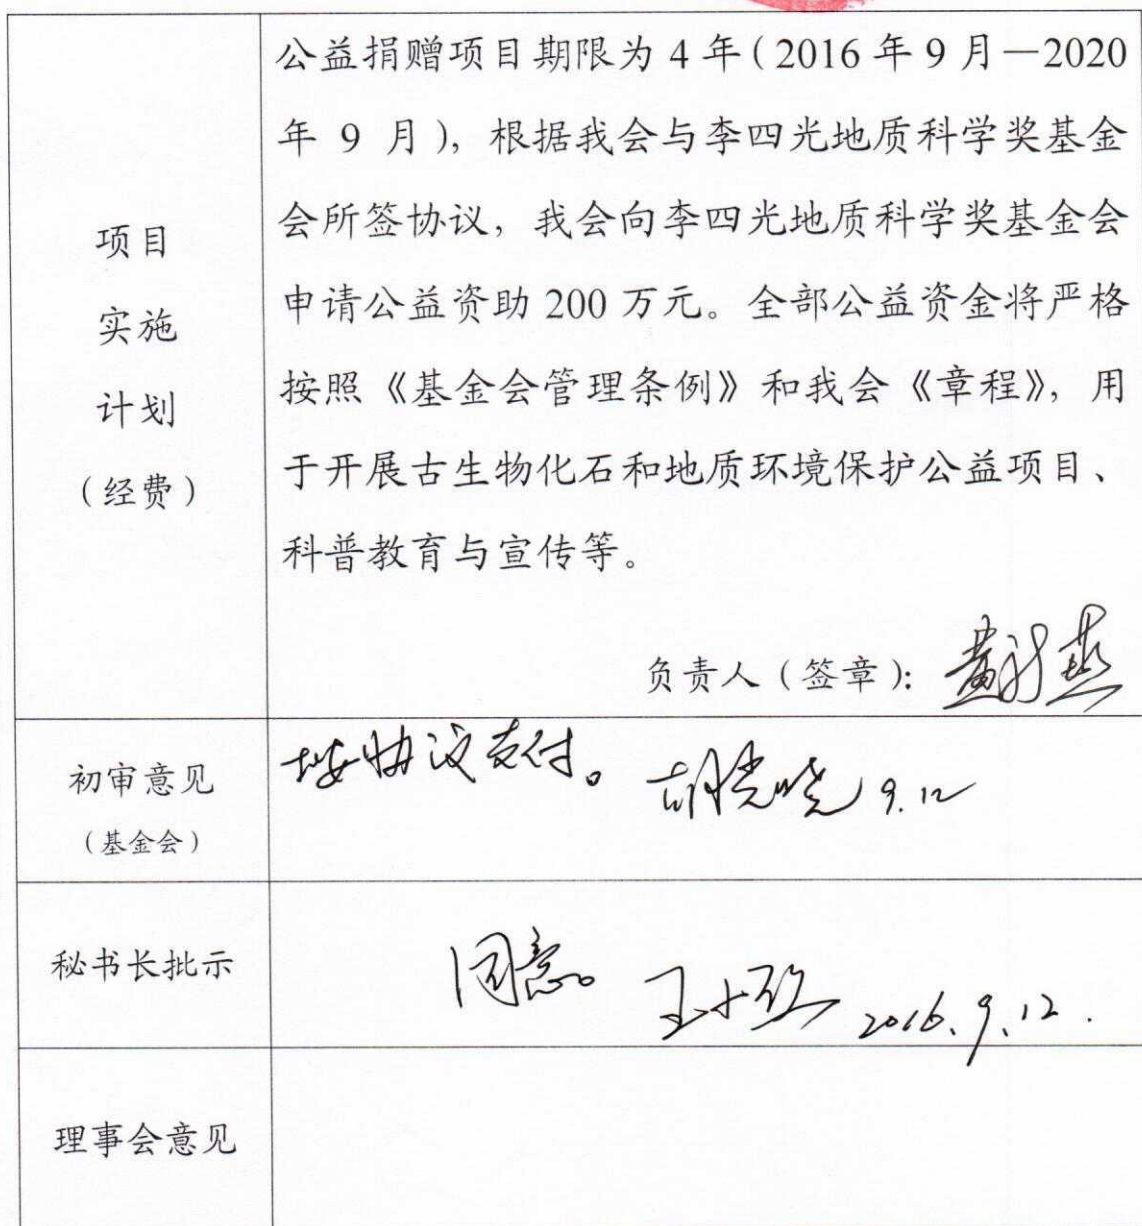 公益捐赠项目期限为 4 年(2016 年 9 月—2020
年 9 月),根据我会与李四光地质科学奖基金
会所签协议,我会向李四光地质科学奖基金会
申请公益资助 200 万元。全部公益资金将严格
按照《基金会管理条例》和我会《章程》,用
于开展古生物化石和地质环境保护公益项目、
科普教育与宣传等。
项目
实施
计划
(经费)
负责人(签章):
初审意见
(基金会)
按协议支付。 胡光晓 9.12
秘书长批示
同意。 2016.9.12.
理事会意见